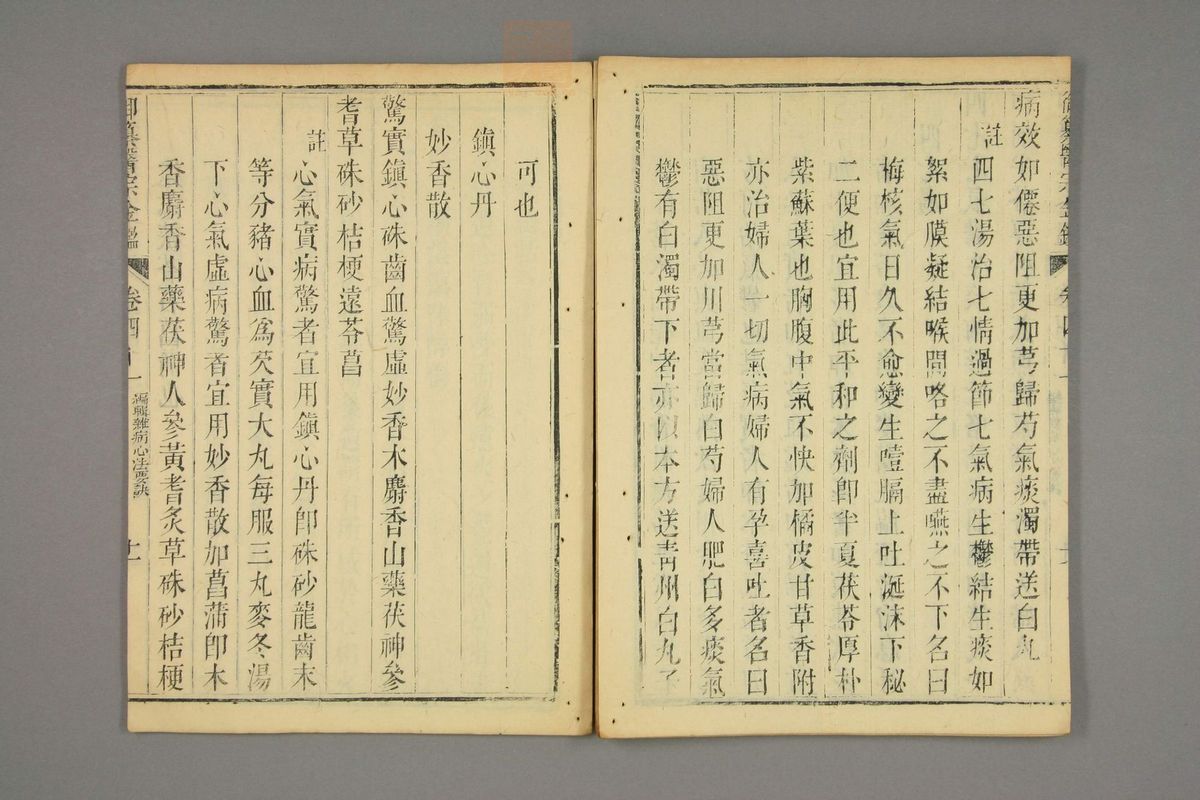 病效如僊惡阻更加芎歸芍氣痰濁帶送白丸
註四七湯治七情過節七氣病生鬱結生痰如
絮如膜凝結喉間咯之不盡嚥之不下名曰
梅核氣日久不愈變生噎膈上吐涎沫下秘
二便也宜用此平和之劑卽半夏茯苓厚朴
紫蘇葉也胸腹中氣不快加橘皮甘草香附
亦治婦人一切氣病婦人有孕喜吐者名曰
惡阻更加川芎當歸白芍婦人肥白多痰氣
鬱有白濁帶下者亦以本方送靑州白丸子
可也
鎭心丹
妙香散
驚實鎭心硃齒血驚虛妙香木麝香山藥茯神參
耆草硃砂桔梗遠苓菖
註心氣實病驚者宜用鎭心丹卽硃砂龍齒末
等分豬心血爲芡實大丸每服三丸麥冬湯
下心氣虛病驚者宜用妙香散加菖蒲卽木
香麝香山藥茯神人參黃耆炙草硃砂桔梗
御纂醫宗金鑑
卷四十一
編輯雜病心法要訣